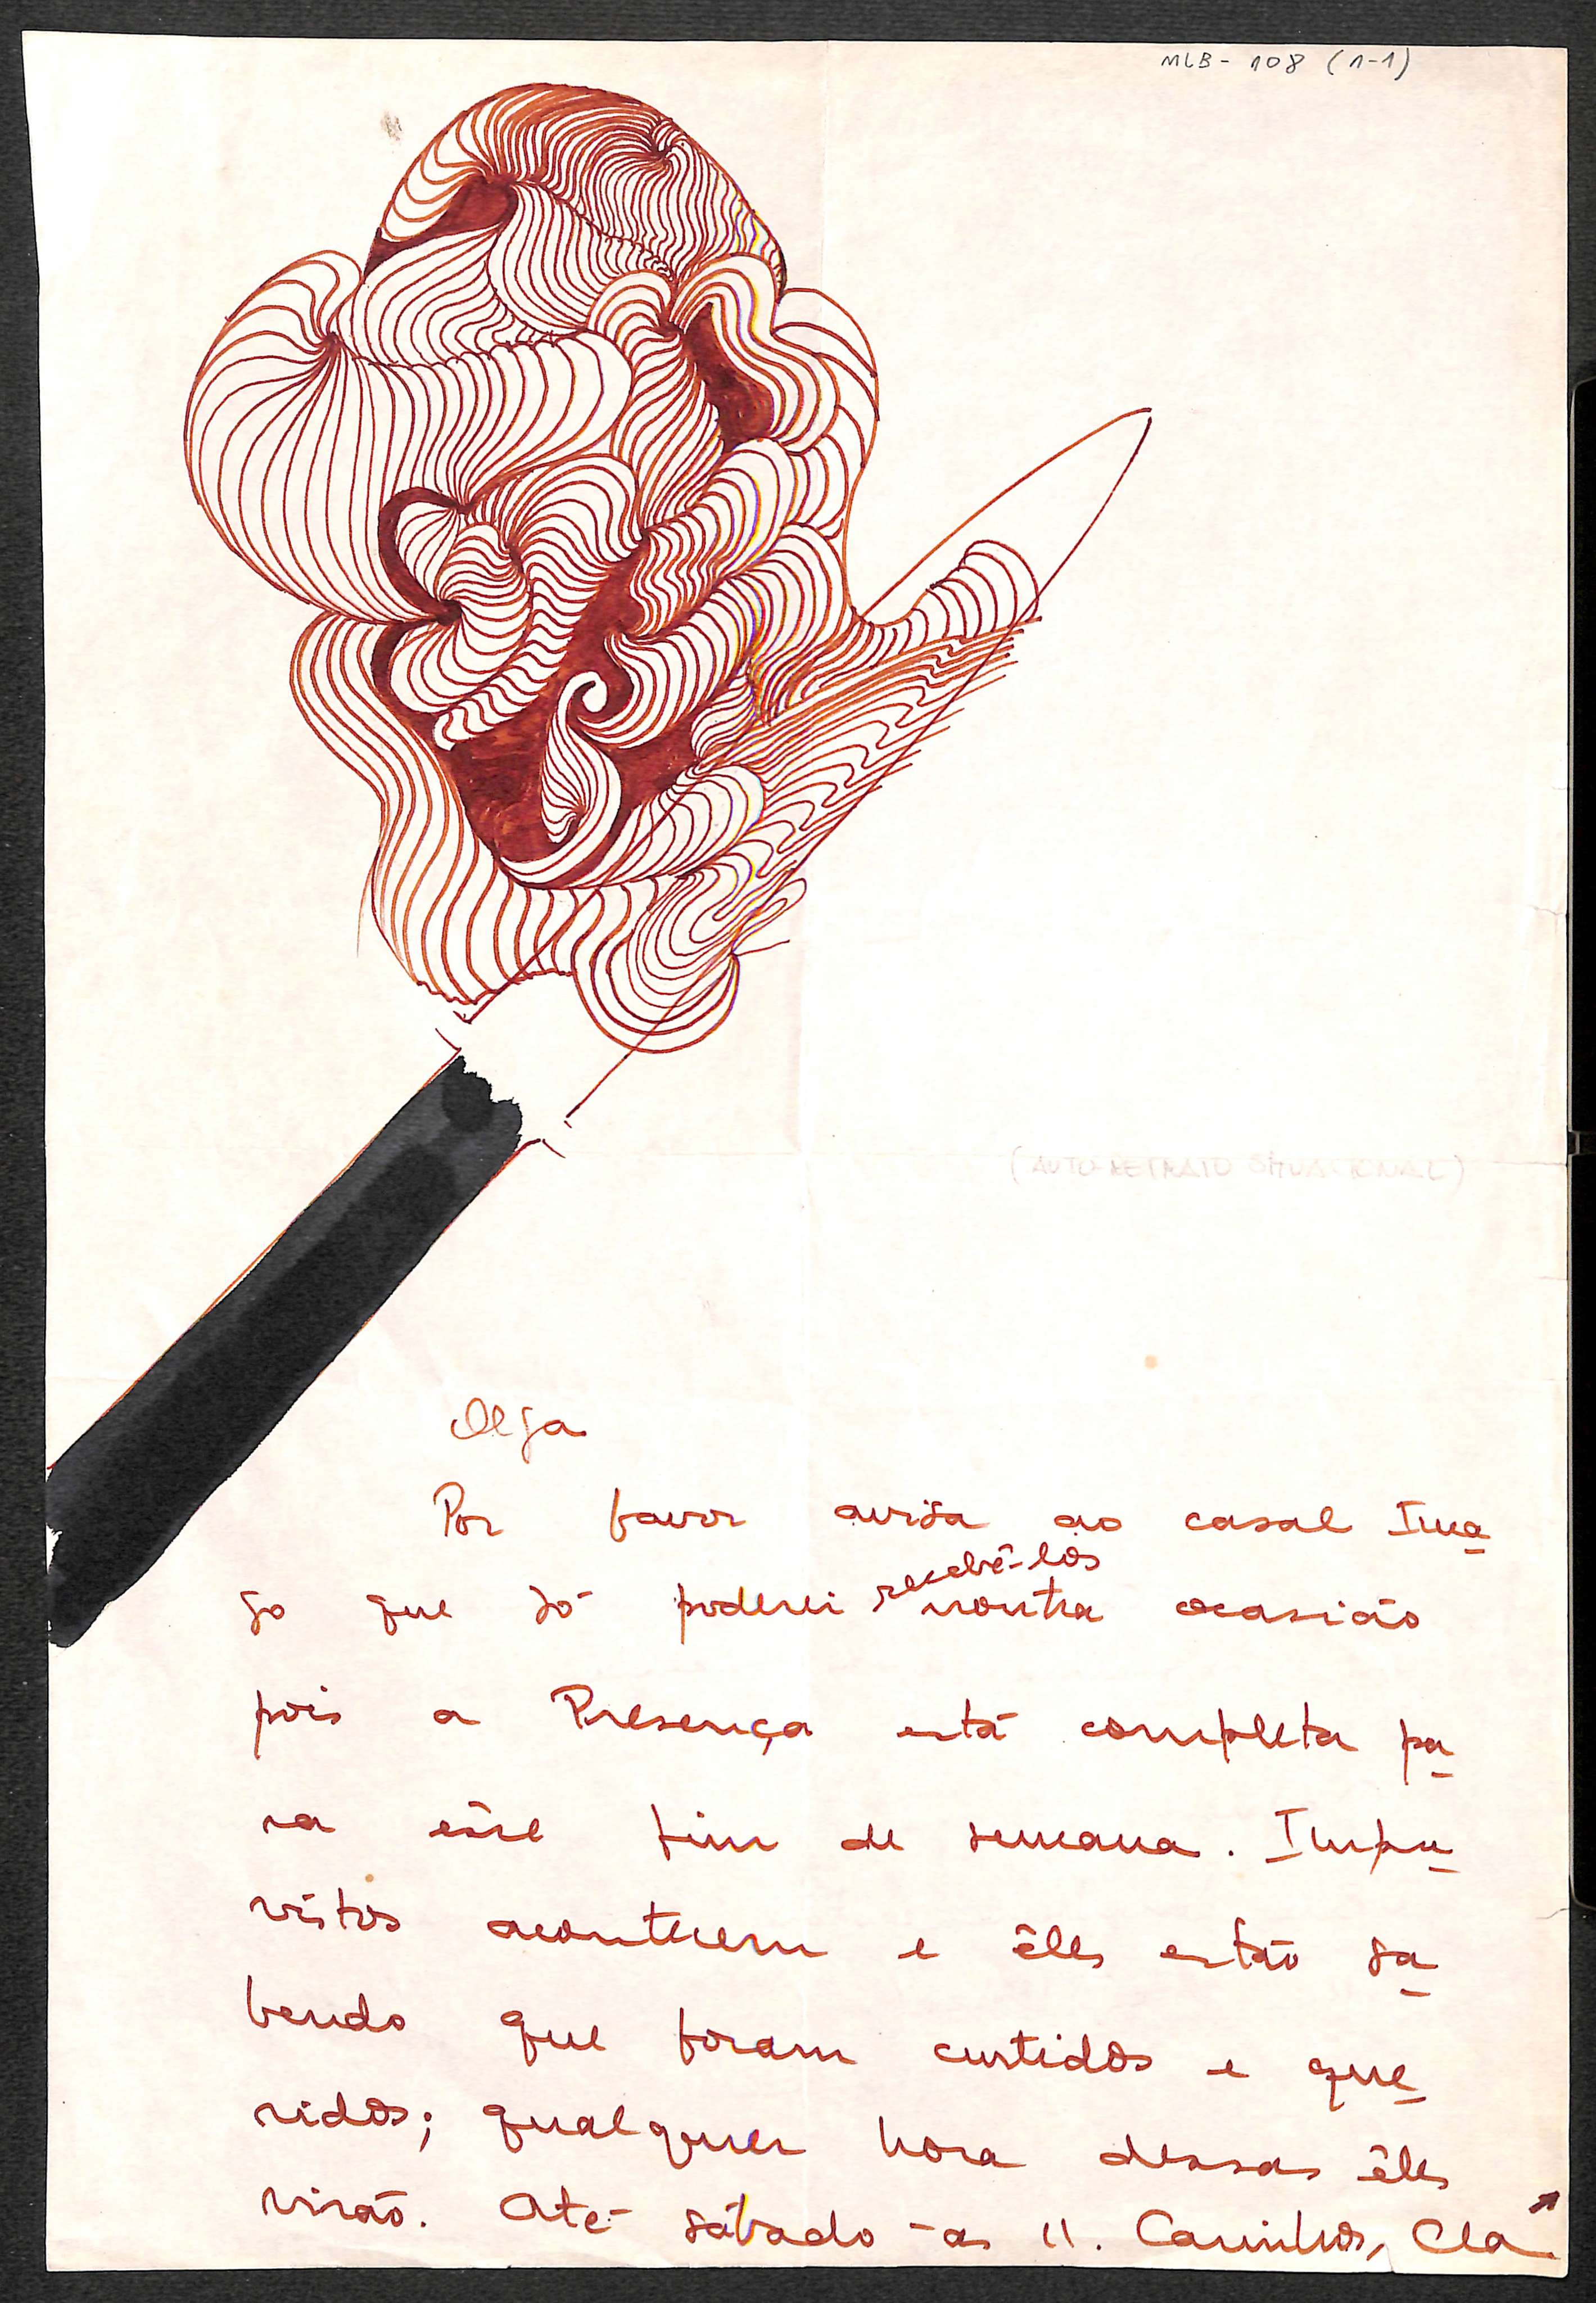 MLB - 108 (1-1)
(AUTO-RETRATO SITUACIONAL)
Olga
Por favor avisa ao casal Ima
go que só poderei recebê-los noutra ocasião
pois a Presença está completa pa
ra êsse fim de semana. Impre
vistos acontecem e êles estão sa
bendo que foram curtidos e que
ridos; qualquer hora dessas êles
virão. Até sábado -as 11. Carinhos,